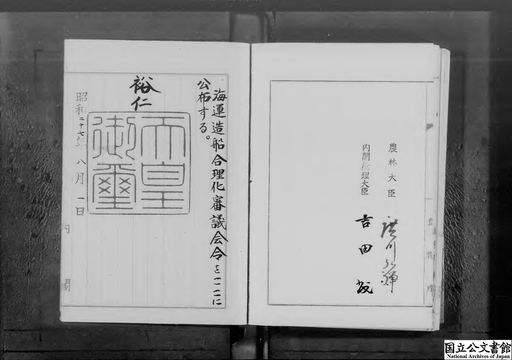 農林大臣 廣川弘禪
内閣総理大臣 吉田茂
海運造船合理化審議会令をここに
公布する。
裕仁
天皇
御璽
昭和二十七年八月一日
内閣
国立公文書館
National Archives of Japan